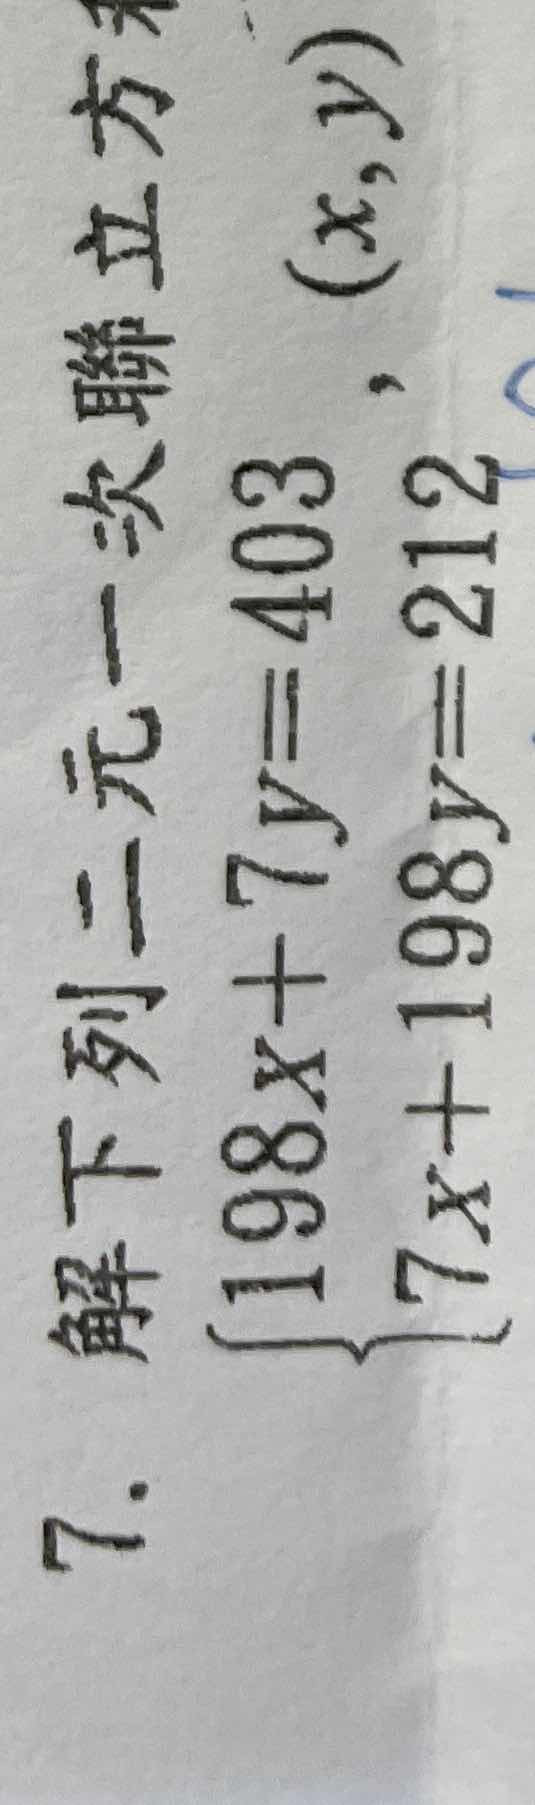 7. 解下列二元一次聯立方
198x+7y=403
7x+198y=212 , (x,y)